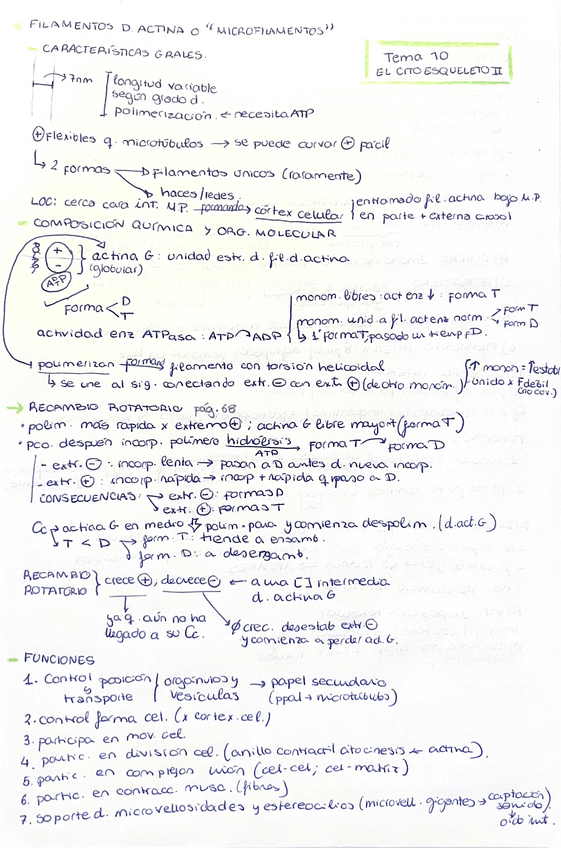 FILAMENTOS D. ACTINA O "MICROFILAMENTOS"
Tema 10
EL CITOESQUELETO II
- CARACTERÍSTICAS GRALES.
7nm
longitud variable
según grado d.
polimerización ← necesita ATP
⊕ Flexibles q. microtúbulos → se puede curvar ⊕ fácil
↳ 2 formas → Filamentos únicos (raramente)
haces/redes
LOC: cerca cara int. M.P. formando → córtex celular
entramado fil. actina bajo M.P.
en parte + externa citosol
- COMPOSICIÓN QUÍMICA Y ORG. MOLECULAR
+
-
ATP
actina G: unidad estr. d. fil. d. actina
(globular)
forma < D
T
actividad enz ATPasa: ATP → ADP
monom. libres: act enz ↓ : forma T
monom. unid a fil. act enz norm. < Form T
Form D
↳ 1º forma T, pasado un tiempo F D.
polimerizan formand filamento con torsión helicoidal
↳ se une al sig. conectando extr. ⊖ con extr. ⊕ (de otro monóm.)
↑ monon = ↑ estab
unido x F debil
(no cov.)
→ RECAMBIO ROTATORIO pág. 68
• polim. más rapida x extremo ⊕ ; actina G libre mayorit (forma T)
• pco. despues incorp. polímero hidrólisis ATP forma T → forma D
- extr. ⊖ : incorp. lenta → pasan a D antes d. nueva incorp.
- extr. ⊕ : incorp. rápida → incorp + rápida q. paso a D.
CONSECUENCIAS: → extr. ⊖: formas D
→ extr. ⊕: formas T
Cc → actina G en medio ⇒ polim. para y comienza despolim. (d. act. G)
↳ T < D → form. T: tiende a ensamb.
form. D: a desensamb.
RECAMBIO
ROTATORIO
crece ⊕, decrece ⊖ ← a una [] intermedia
d. actina G
ya q. aún no ha
llegado a su Cc.
∅ crec. desestab extr. ⊖
y comienza a perder act. G.
- FUNCIONES
1. Control posición
y
transporte
orgánulos y
vesículas
→ papel secundario
(ppal → microtúbulos)
2. control forma cel. (x cortex. cel.)
3. participa en mov. cel.
4. partic. en división cel. (anillo contractil citocinesis ← actina).
5. partic. en complejos unión (cel-cel; cel-matriz)
6. partic. en contracc. musc. (fibras)
7. soporte d. microvellosidades y estereocilios (microvell. gigantes → captación
sonido).
oído int.